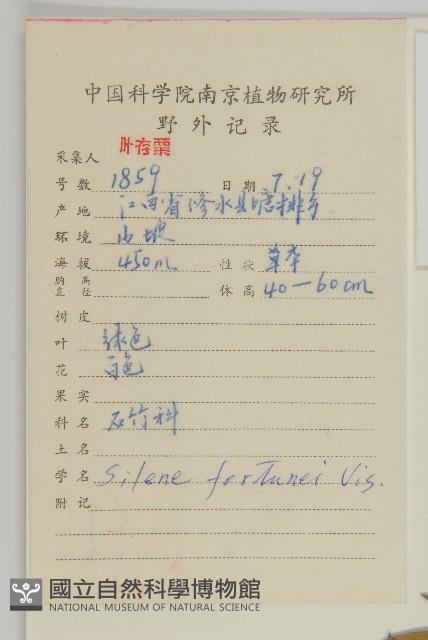 中国科学院南京植物研究所
野外记录
采集人 叶存粟
号数 1859 日期 7.19
产地 江西省修水县塘排乡
环境 山坡
海拔 450m 性状 草本
胸高直径 体高 40—60cm
树皮
叶 绿色
花 白色
果实
科名 石竹科
土名
学名 Silene fortunei Vis.
附记
國立自然科學博物館
NATIONAL MUSEUM OF NATURAL SCIENCE